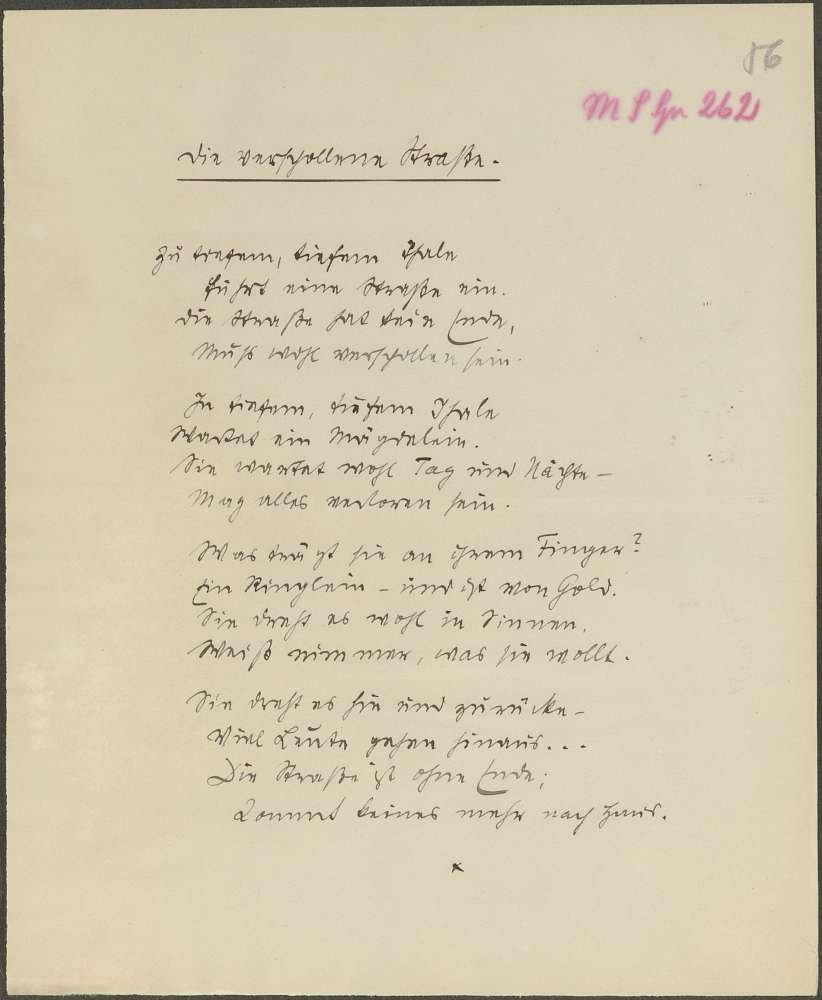 56
M S Gr 262
Die verschollene Straße.
Zu tiefem, tiefem Thale
Führt eine Straße ein.
Die Straße hat kein Ende,
Muß wohl verschollen sein.
In tiefem, tiefem Thale
Wartet ein Mägdelein.
Sie wartet wohl Tag und Nächte –
Mag alles verloren sein.
Was trägt sie an ihrem Finger?
Ein Ringlein – und ist von Gold.
Sie dreht es wohl in Sinnen,
Weiß nimmer, was sie wollt.
Sie dreht es hin und zurücke –
Viel Leute gehen hinaus...
Die Straße ist ohne Ende;
Kommt keines mehr nach Haus.